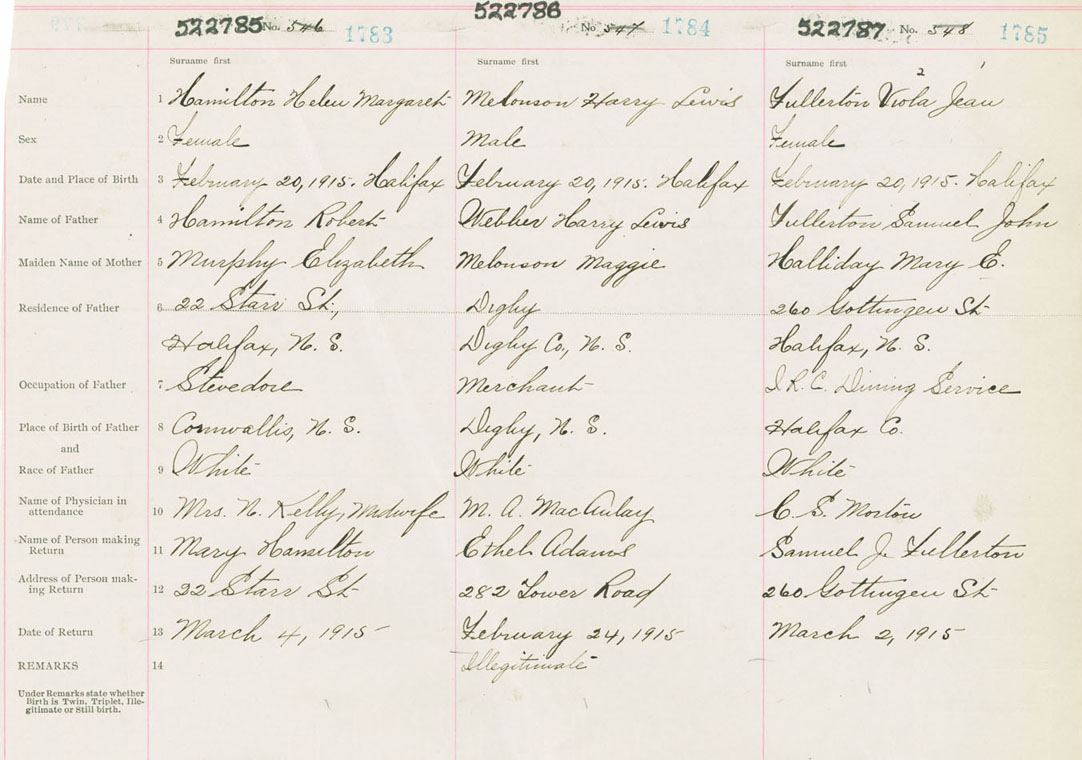 522785 No. 546 1783 522786 No. 547 1784 522787 No. 548 1785
Surname first Surname first Surname first
2 1
Name 1 Hamilton Helen Margaret Melonson Harry Lewis Fullerton Viola Jean
Sex 2 Female Male Female
Date and Place of Birth 3 February 20, 1915. Halifax February 20, 1915. Halifax February 20, 1915. Halifax
Name of Father 4 Hamilton Robert Webber Harry Lewis Fullerton Samuel John
Maiden Name of Mother 5 Murphy Elizabeth Melonson Maggie Halliday Mary E.
Residence of Father 6 22 Starr St., Digby 260 Gottingen St
Halifax, N. S. Digby Co., N. S. Halifax, N. S.
Occupation of Father 7 Stevedore Merchant I. R. C. Dining Service
Place of Birth of Father 8 Cornwallis, N. S. Digby, N. S. Halifax Co.
and
Race of Father 9 White White White
Name of Physician in
attendance 10 Mrs. N. Kelly, Midwife M. A. MacAulay C. S. Morton
Name of Person making
Return 11 Mary Hamilton Ethel Adams Samuel J. Fullerton
Address of Person mak-
ing Return 12 22 Starr St 282 Tower Road 260 Gottingen St
Date of Return 13 March 4, 1915 February 24, 1915 March 2, 1915
REMARKS 14 Illegitimate
Under Remarks state whether
Birth is Twin, Triplet, Ille-
gitimate or Still birth.